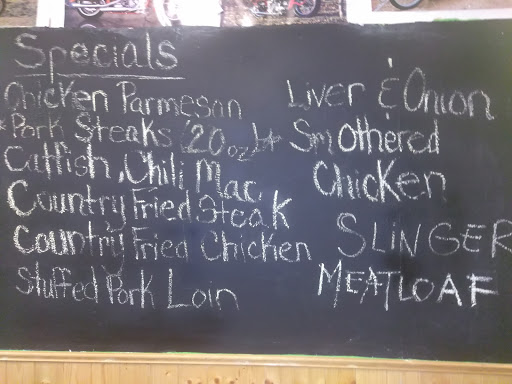 Specials
Chicken Parmesan
*Pork Steaks (20oz)*
Catfish, Chili Mac,
Country Fried Steak
Country Fried Chicken
Stuffed Pork Loin
Liver & Onion
Smothered
Chicken
SLINGER
MEATLOAF